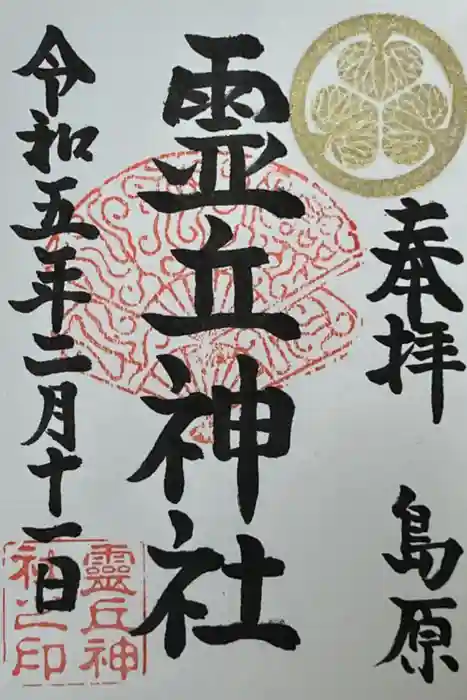 奉拝 島原
霊丘神社
令和五年二月十一日
靈丘神
社之印